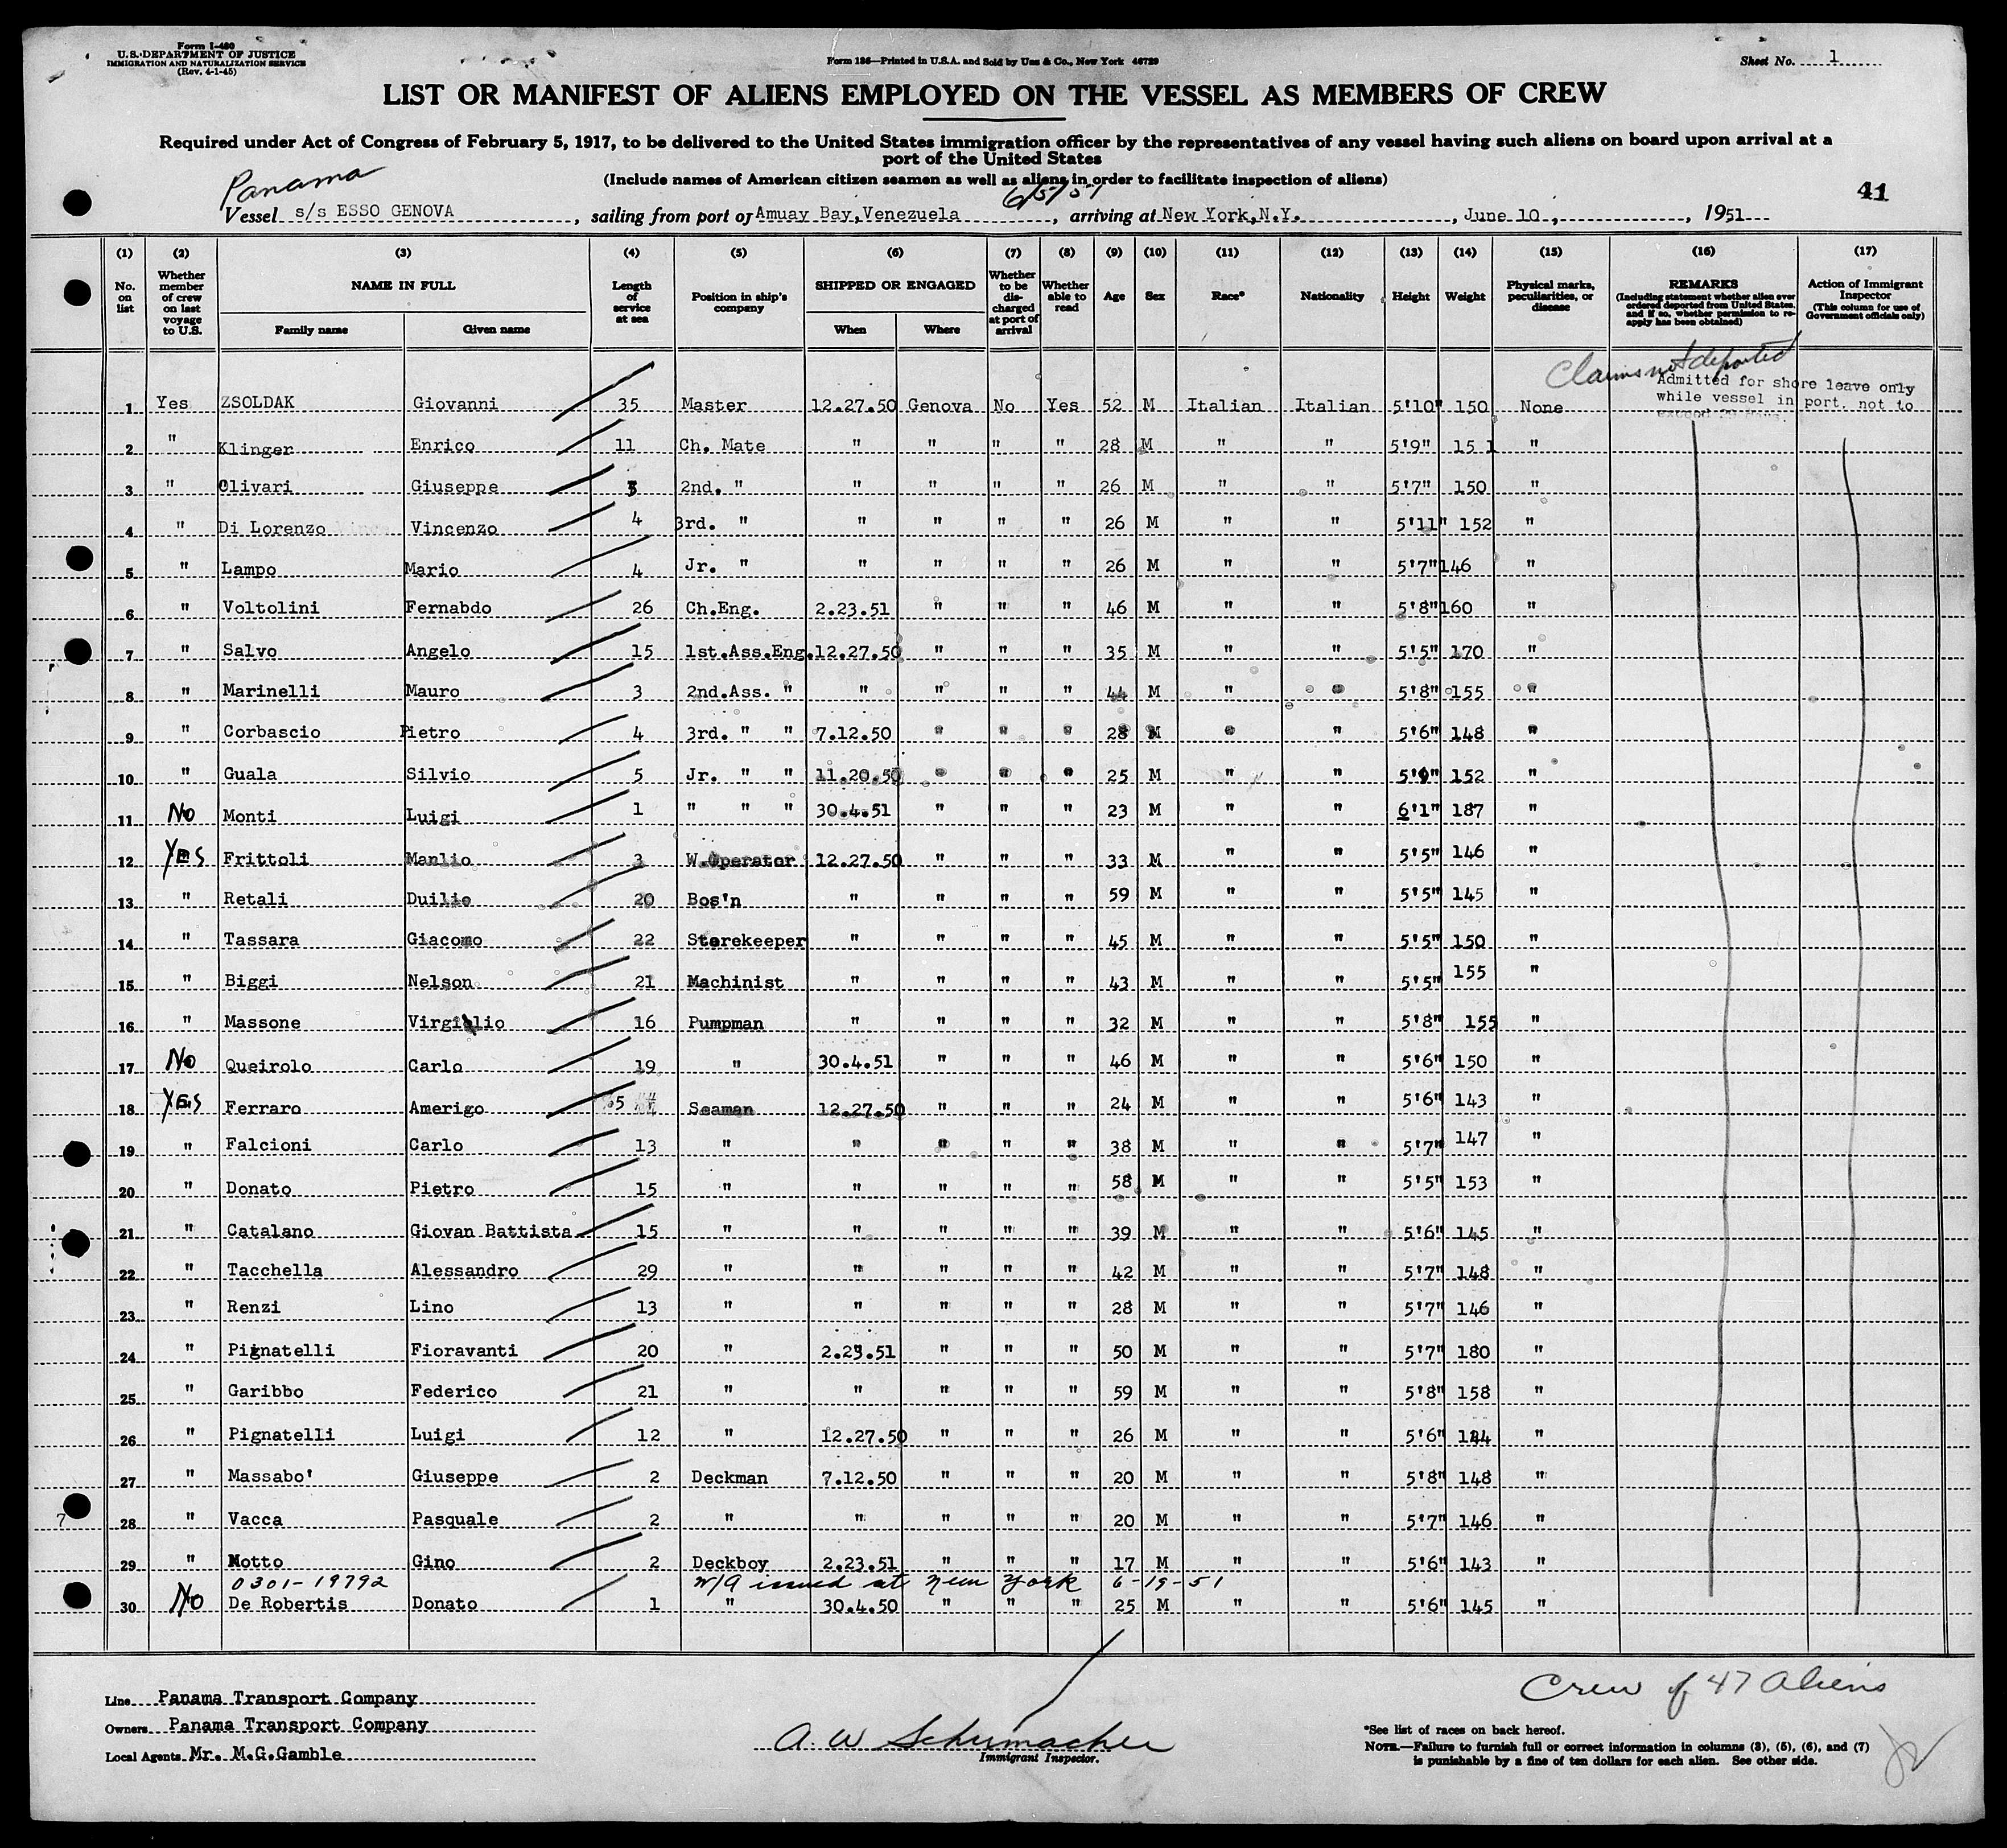 Form I-480
U.S. DEPARTMENT OF JUSTICE
IMMIGRATION AND NATURALIZATION SERVICE
(Rev. 4-1-45)
Form 186—Printed in U.S.A. and Sold by Unz & Co., New York 46729
Sheet No. 1
LIST OR MANIFEST OF ALIENS EMPLOYED ON THE VESSEL AS MEMBERS OF CREW
Required under Act of Congress of February 5, 1917, to be delivered to the United States immigration officer by the representatives of any vessel having such aliens on board upon arrival at a
port of the United States
(Include names of American citizen seamen as well as aliens in order to facilitate inspection of aliens)
Panama
6/5/51
41
Vessel s/s ESSO GENOVA, sailing from port of Amuay Bay,Venezuela, arriving at New York,N.Y., June 10, 1951
(1) (2) (3) (4) (5) (6) (7) (8) (9) (10) (11) (12) (13) (14) (15) (16) (17)
No. on list
Whether member of crew on last voyage to U.S.
NAME IN FULL
Family name Given name
Length of service at sea
Position in ship's company
SHIPPED OR ENGAGED
When Where
Whether to be discharged at port of arrival
Whether able to read
Age Sex Race* Nationality Height Weight
Physical marks, peculiarities, or disease
REMARKS
(Including statement whether alien ever ordered deported from United States, and if so, whether permission to re-apply has been obtained)
Action of Immigrant Inspector
(This column for use of Government officials only)
Claims not deported
Admitted for shore leave only
while vessel in port. not to
exceed 29 days.
1 Yes ZSOLDAK Giovanni 35 Master 12.27.50 Genova No Yes 52 M Italian Italian 5'10" 150 None
2 " Klinger Enrico 11 Ch. Mate " " " " 28 M " " 5'9" 151 "
3 " Olivari Giuseppe 2nd. " " " " " 26 M " " 5'7" 150 "
4 " Di Lorenzo Vincenzo 4 3rd. " " " " " 26 M " " 5'11" 152 "
5 " Lampo Mario 4 Jr. " " " " " 26 M " " 5'7" 146 "
6 " Voltolini Fernabdo 26 Ch.Eng. 2.23.51 " " " 46 M " " 5'8" 160 "
7 " Salvo Angelo 15 1st.Ass.Eng. 12.27.50 " " " 35 M " " 5'5" 170 "
8 " Marinelli Mauro 3 2nd.Ass. " " " " " 44 M " " 5'8" 155 "
9 " Corbascio Pietro 4 3rd. " " 7.12.50 " " " 28 M " " 5'6" 148 "
10 " Guala Silvio 5 Jr. " " 11.20.50 " " " 25 M " " 5'9" 152 "
11 No Monti Luigi 1 " " " 30.4.51 " " " 23 M " " 6'1" 187 "
12 Yes Frittoli Manlio 3 W.Operator 12.27.50 " " " 33 M " " 5'5" 146 "
13 " Retali Duilio 20 Bos'n " " " " 59 M " " 5'5" 145 "
14 " Tassara Giacomo 22 Storekeeper " " " " 45 M " " 5'5" 150 "
15 " Biggi Nelson 21 Machinist " " " " 43 M " " 5'5" 155 "
16 " Massone Virgilio 16 Pumpman " " " " 32 M " " 5'8" 155 "
17 No Queirolo Carlo 19 " 30.4.51 " " " 46 M " " 5'6" 150 "
18 Yes Ferraro Amerigo 5 Seaman 12.27.50 " " " 24 M " " 5'6" 143 "
19 " Falcioni Carlo 13 " " " " " 38 M " " 5'7" 147 "
20 " Donato Pietro 15 " " " " " 58 M " " 5'5" 153 "
21 " Catalano Giovan Battista 15 " " " " " 39 M " " 5'6" 145 "
22 " Tacchella Alessandro 29 " " " " " 42 M " " 5'7" 148 "
23 " Renzi Lino 13 " " " " " 28 M " " 5'7" 146 "
24 " Pignatelli Fioravanti 20 " 2.23.51 " " " 50 M " " 5'7" 180 "
25 " Garibbo Federico 21 " " " " " 59 M " " 5'8" 158 "
26 " Pignatelli Luigi 12 " 12.27.50 " " " 26 M " " 5'6" "
27 " Massabo' Giuseppe 2 Deckman 7.12.50 " " " 20 M " " 5'8" 148 "
7
28 " Vacca Pasquale 2 " " " " " 20 M " " 5'7" 146 "
29 " Motto Gino 2 Deckboy 2.23.51 " " " 17 M " " 5'6" 143 "
0301-19792 W/A issued at New York 6-19-51
30 No De Robertis Donato 1 " 30.4.50 " " " 25 M " " 5'6" 145 "
Crew of 47 Aliens
Line Panama Transport Company
Owners Panama Transport Company
Local Agents Mr. M.G.Gamble
A. W Schumacher
Immigrant Inspector.
*See list of races on back hereof.
NOTE.—Failure to furnish full or correct information in columns (3), (5), (6), and (7)
is punishable by a fine of ten dollars for each alien. See other side.